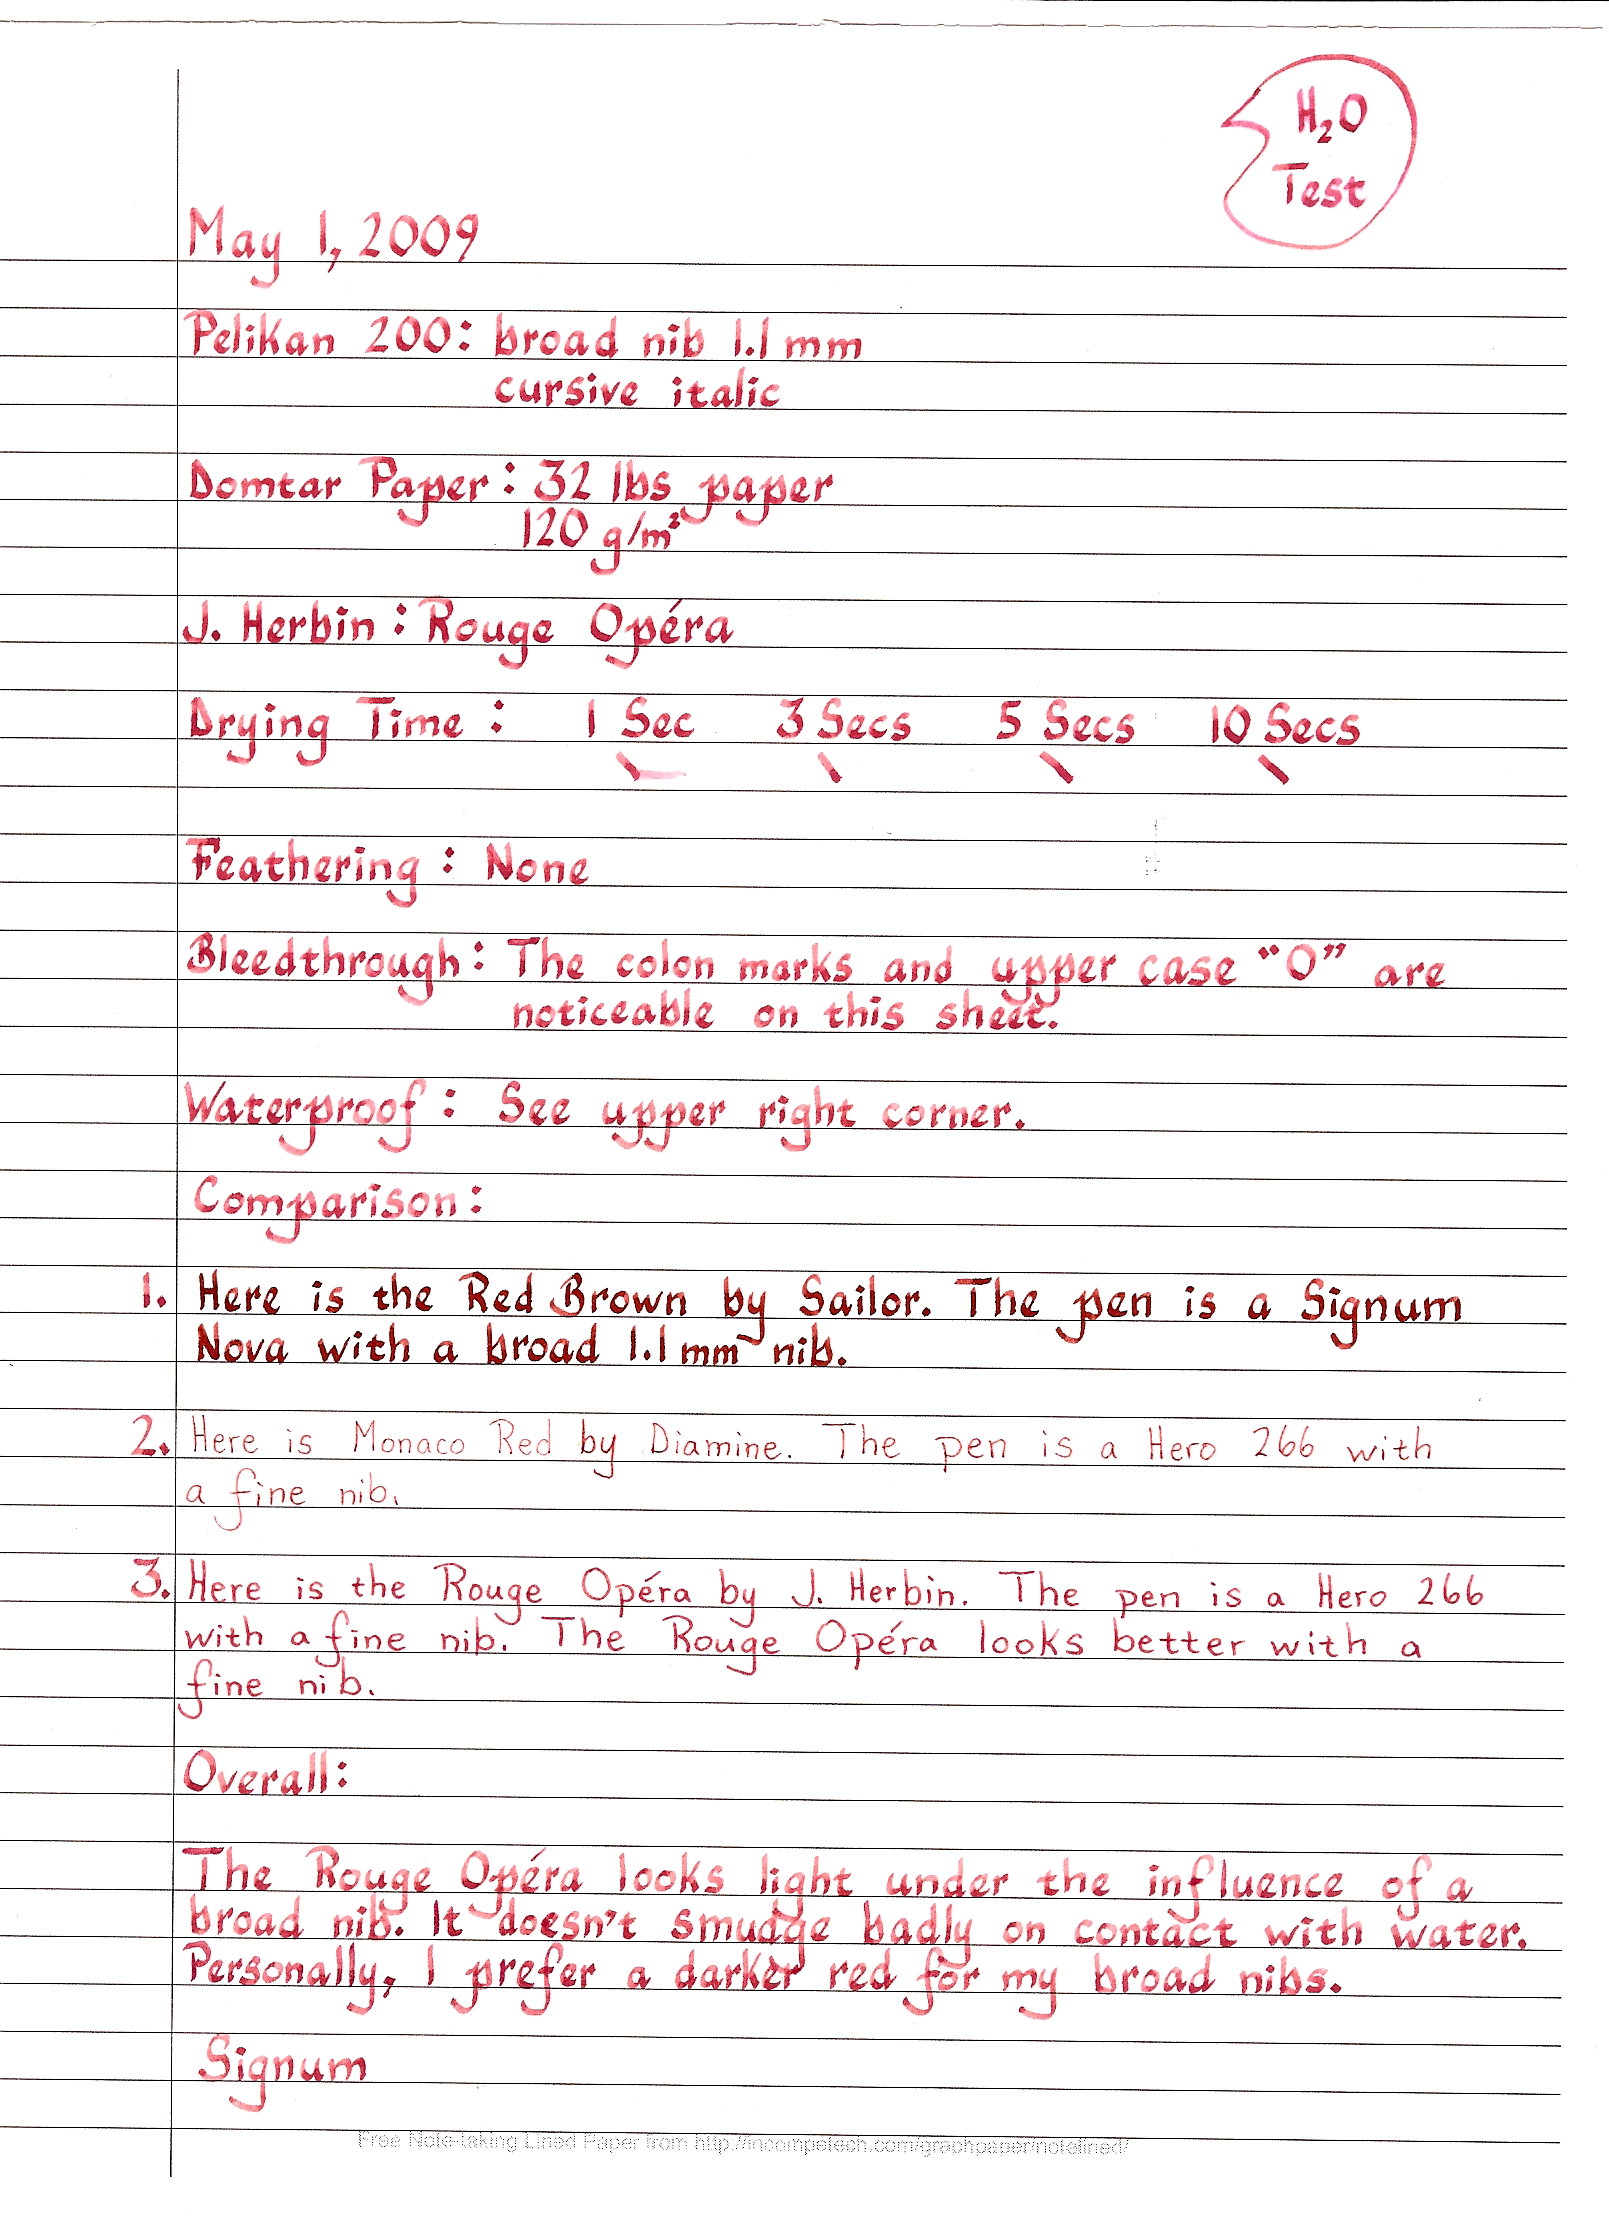 H₂O
Test
May 1, 2009
Pelikan 200: broad nib 1.1 mm
cursive italic
Domtar Paper: 32 lbs paper
120 g/m²
J. Herbin: Rouge Opéra
Drying Time: 1 Sec 3 Secs 5 Secs 10 Secs
Feathering: None
Bleedthrough: The colon marks and upper case "O" are
noticeable on this sheet.
Waterproof: See upper right corner.
Comparison:
1. Here is the Red Brown by Sailor. The pen is a Signum
Nova with a broad 1.1 mm nib.
2. Here is Monaco Red by Diamine. The pen is a Hero 266 with
a fine nib.
3. Here is the Rouge Opéra by J. Herbin. The pen is a Hero 266
with a fine nib. The Rouge Opéra looks better with a
fine nib.
Overall:
The Rouge Opéra looks light under the influence of a
broad nib. It doesn't smudge badly on contact with water.
Personally, I prefer a darker red for my broad nibs.
Signum
Free Note-taking Lined Paper from http://incompetech.com/graphpaper/notelined/